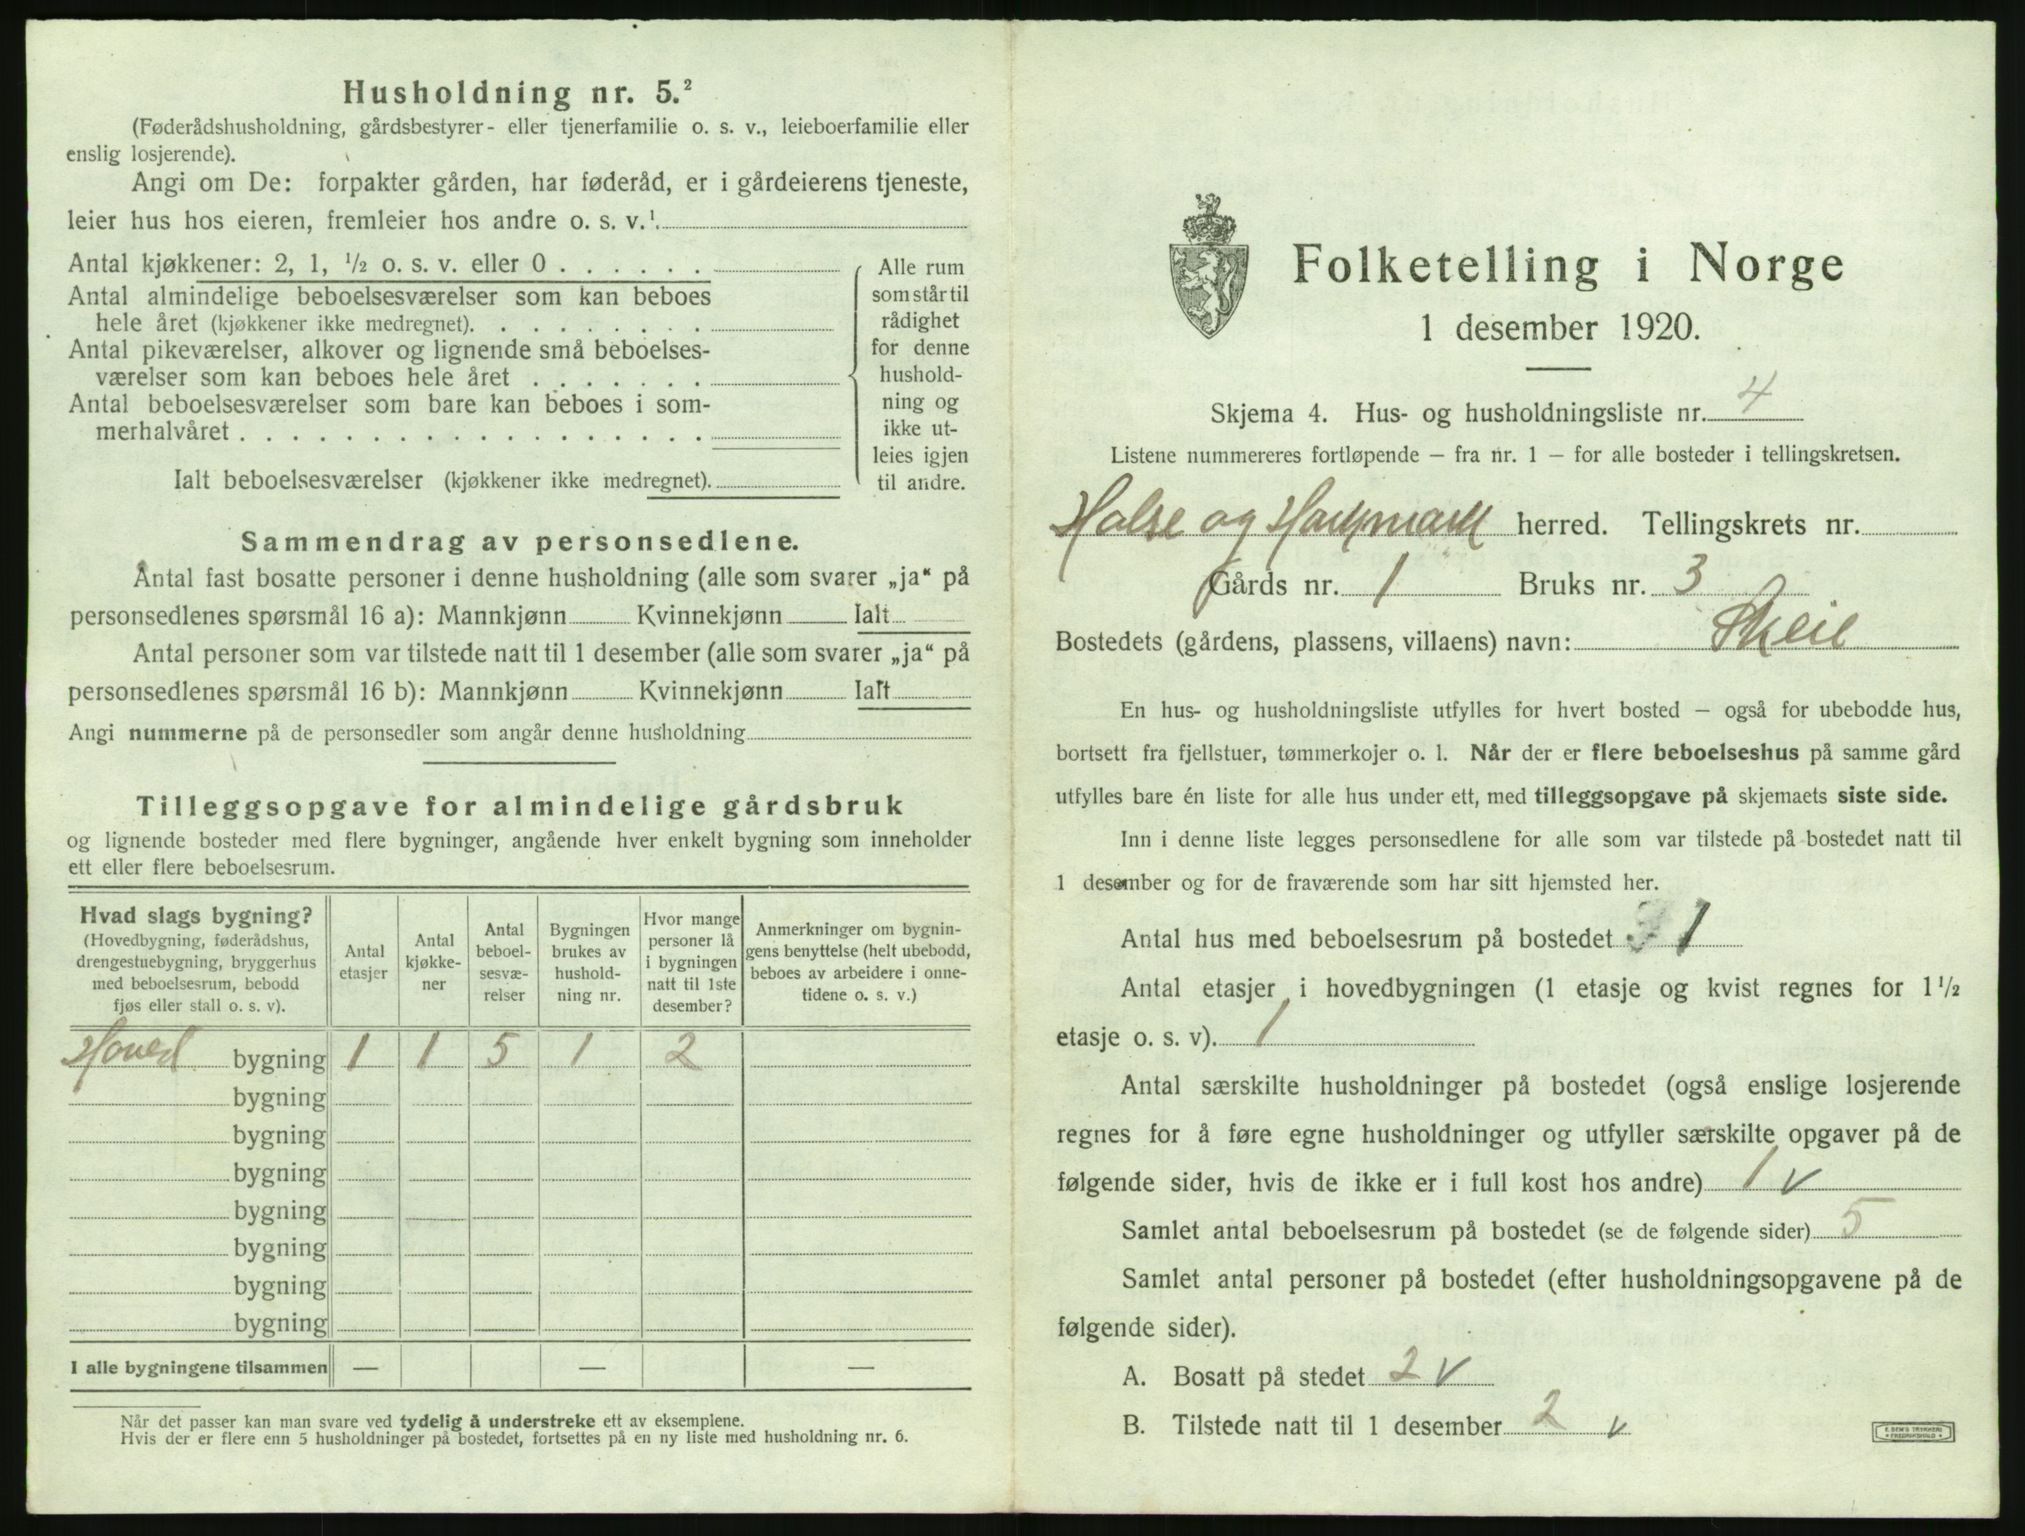 Husholdning nr. 5.²
(Føderådshusholdning, gårdsbestyrer- eller tjenerfamilie o. s. v., leieboerfamilie eller
enslig losjerende).
Angi om De: forpakter gården, har føderåd, er i gårdeierens tjeneste,
leier hus hos eieren, fremleier hos andre o. s. v.¹.
Antal kjøkkener: 2, 1, ½ o. s. v. eller 0 . . . . . .
Antal almindelige beboelsesværelser som kan beboes
hele året (kjøkkener ikke medregnet). . . . . . . . .
Antal pikeværelser, alkover og lignende små beboelses-
værelser som kan beboes hele året . . . . . . .
Antal beboelsesværelser som bare kan beboes i som-
merhalvåret . . . . . . . . . . . . . . . . . .
Ialt beboelsesværelser (kjøkkener ikke medregnet).
Alle rum
som står til
rådighet
for denne
hushold-
ning og
ikke ut-
leies igjen
til andre.
Sammendrag av personsedlene.
Antal fast bosatte personer i denne husholdning (alle som svarer „ja“ på
personsedlenes spørsmål 16 a): Mannkjønn Kvinnekjønn Ialt
Antal personer som var tilstede natt til 1 desember (alle som svarer „ja“ på
personsedlenes spørsmål 16 b): Mannkjønn Kvinnekjønn Ialt
Angi nummerne på de personsedler som angår denne husholdning
Tilleggsopgave for almindelige gårdsbruk
og lignende bosteder med flere bygninger, angående hver enkelt bygning som inneholder
ett eller flere beboelsesrum.
Hvad slags bygning?
(Hovedbygning, føderådshus,
drengestuebygning, bryggerhus
med beboelsesrum, bebodd
fjøs eller stall o. s. v).
Antal
etasjer
Antal
kjøkke-
ner
Antal
beboel-
sesvæ-
relser
Bygningen
brukes av
hushold-
ning nr.
Hvor mange
personer lå
i bygningen
natt til 1ste
desember?
Anmerkninger om bygnin-
gens benyttelse (helt ubebodd,
beboes av arbeidere i onne-
tidene o. s. v.)
Hoved bygning 1 1 5 1 2
bygning
bygning
bygning
bygning
bygning
bygning
bygning
I alle bygningene tilsammen — — —
Når det passer kan man svare ved tydelig å understreke ett av eksemplene.
Hvis der er flere enn 5 husholdninger på bostedet, fortsettes på en ny liste med husholdning nr. 6.
Folketelling i Norge
1 desember 1920.
Skjema 4. Hus- og husholdningsliste nr. 4
Listene nummereres fortløpende — fra nr. 1 — for alle bosteder i tellingskretsen.
Halse og Harkmark herred. Tellingskrets nr.
Gårds nr. 1 Bruks nr. 3
Bostedets (gårdens, plassens, villaens) navn: Skeie
En hus- og husholdningsliste utfylles for hvert bosted — også for ubebodde hus,
bortsett fra fjellstuer, tømmerkojer o. l. Når der er flere beboelseshus på samme gård
utfylles bare én liste for alle hus under ett, med tilleggsopgave på skjemaets siste side.
Inn i denne liste legges personsedlene for alle som var tilstede på bostedet natt til
1 desember og for de fraværende som har sitt hjemsted her.
Antal hus med beboelsesrum på bostedet 1
Antal etasjer i hovedbygningen (1 etasje og kvist regnes for 1½
etasje o. s. v). 1
Antal særskilte husholdninger på bostedet (også enslige losjerende
regnes for å føre egne husholdninger og utfyller særskilte opgaver på de
følgende sider, hvis de ikke er i full kost hos andre) 1 v
Samlet antal beboelsesrum på bostedet (se de følgende sider) 5
Samlet antal personer på bostedet (efter husholdningsopgavene på de
følgende sider).
A. Bosatt på stedet 2 v
B. Tilstede natt til 1 desember 2 v
E. SEM'S TRYKKERI
FREDRIKSHALD